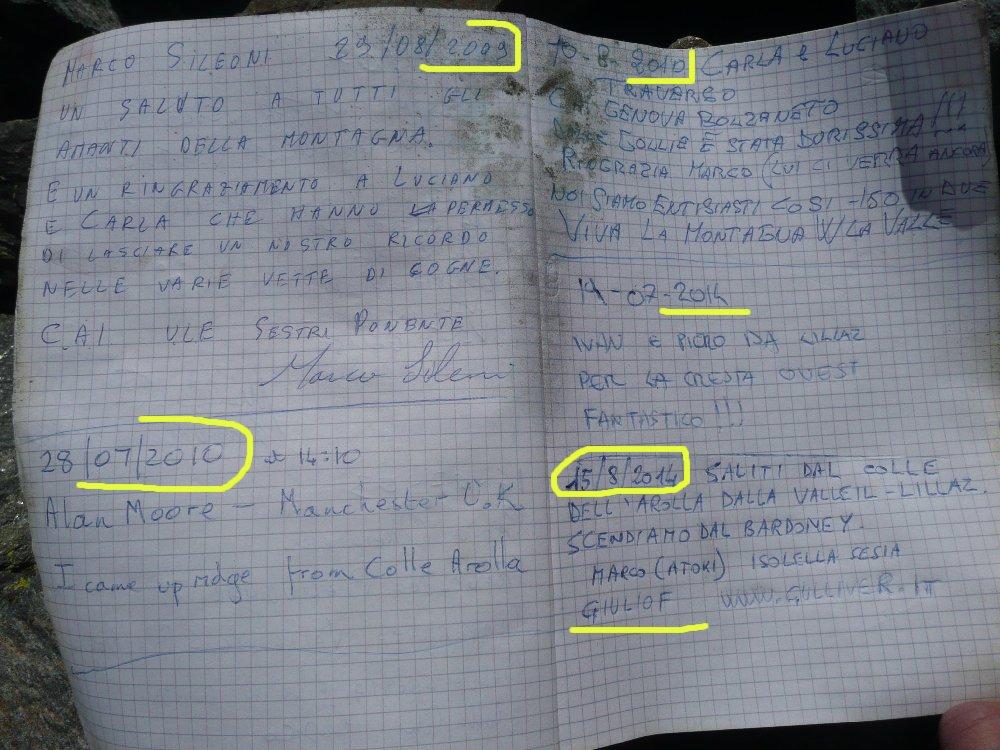 MARCO SILEONI 23/08/2009
UN SALUTO A TUTTI GLI
AMANTI DELLA MONTAGNA.
E UN RINGRAZIAMENTO A LUCIANO
E CARLA CHE HANNO PERMESSO
DI LASCIARE UN NOSTRO RICORDO
NELLE VARIE VETTE DI COGNE.
C.A.I ULE SESTRI PONENTE
Marco Sileoni
28/07/2010 14:10
Alan Moore - Manchester U.K
I came up ridge from Colle Arolla
10-8-2010 CARLA e LUCIANO
TRAVERSO
GENOVA BOLZANETO
COLLIE È STATA DURISSIMA !!!
RINGRAZIA MARCO (LUI CI VERRA ANCORA)
NOI SIAMO ENTUSIASTI COSI -150 IN DUE
VIVA LA MONTAGNA W LA VALLE
14-07-2014
IVAN E PIERO DA LILLAZ
PER LA CRESTA OVEST
FANTASTICO!!!
15/8/2014 SALITI DAL COLLE
DELL'AROLLA DALLA VALLEIL-LILLAZ.
SCENDIAMO DAL BARDONEY.
MARCO (ATOKI) ISOLELLA SESIA
GIULIOF WWW.GULLIVER.IT